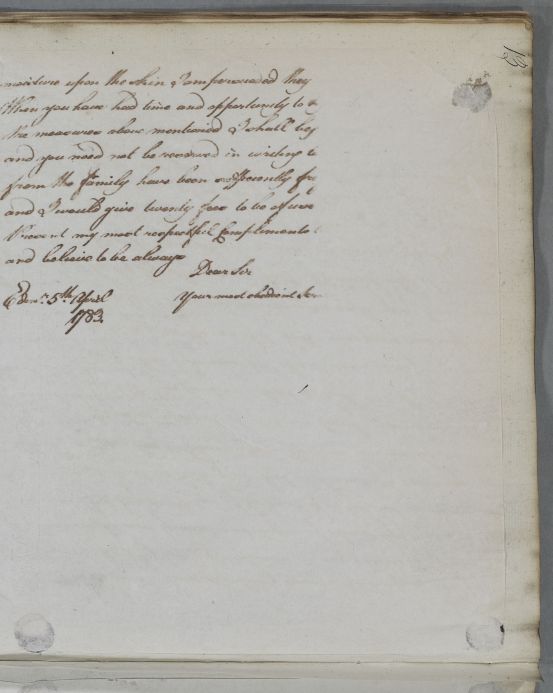 13
moisture upon the skin, I am perswaded they
When you have had time and opportunity to
the measures above mentioned I shall beg
and you need not be reserved in writing
from the family have been sufficiently
and I would give twenty fees to be of use
Present my most respectful Compliments
and believe to be always
Dear Sir
Your most obedient Ser
Edenr. 5th. April
1783.